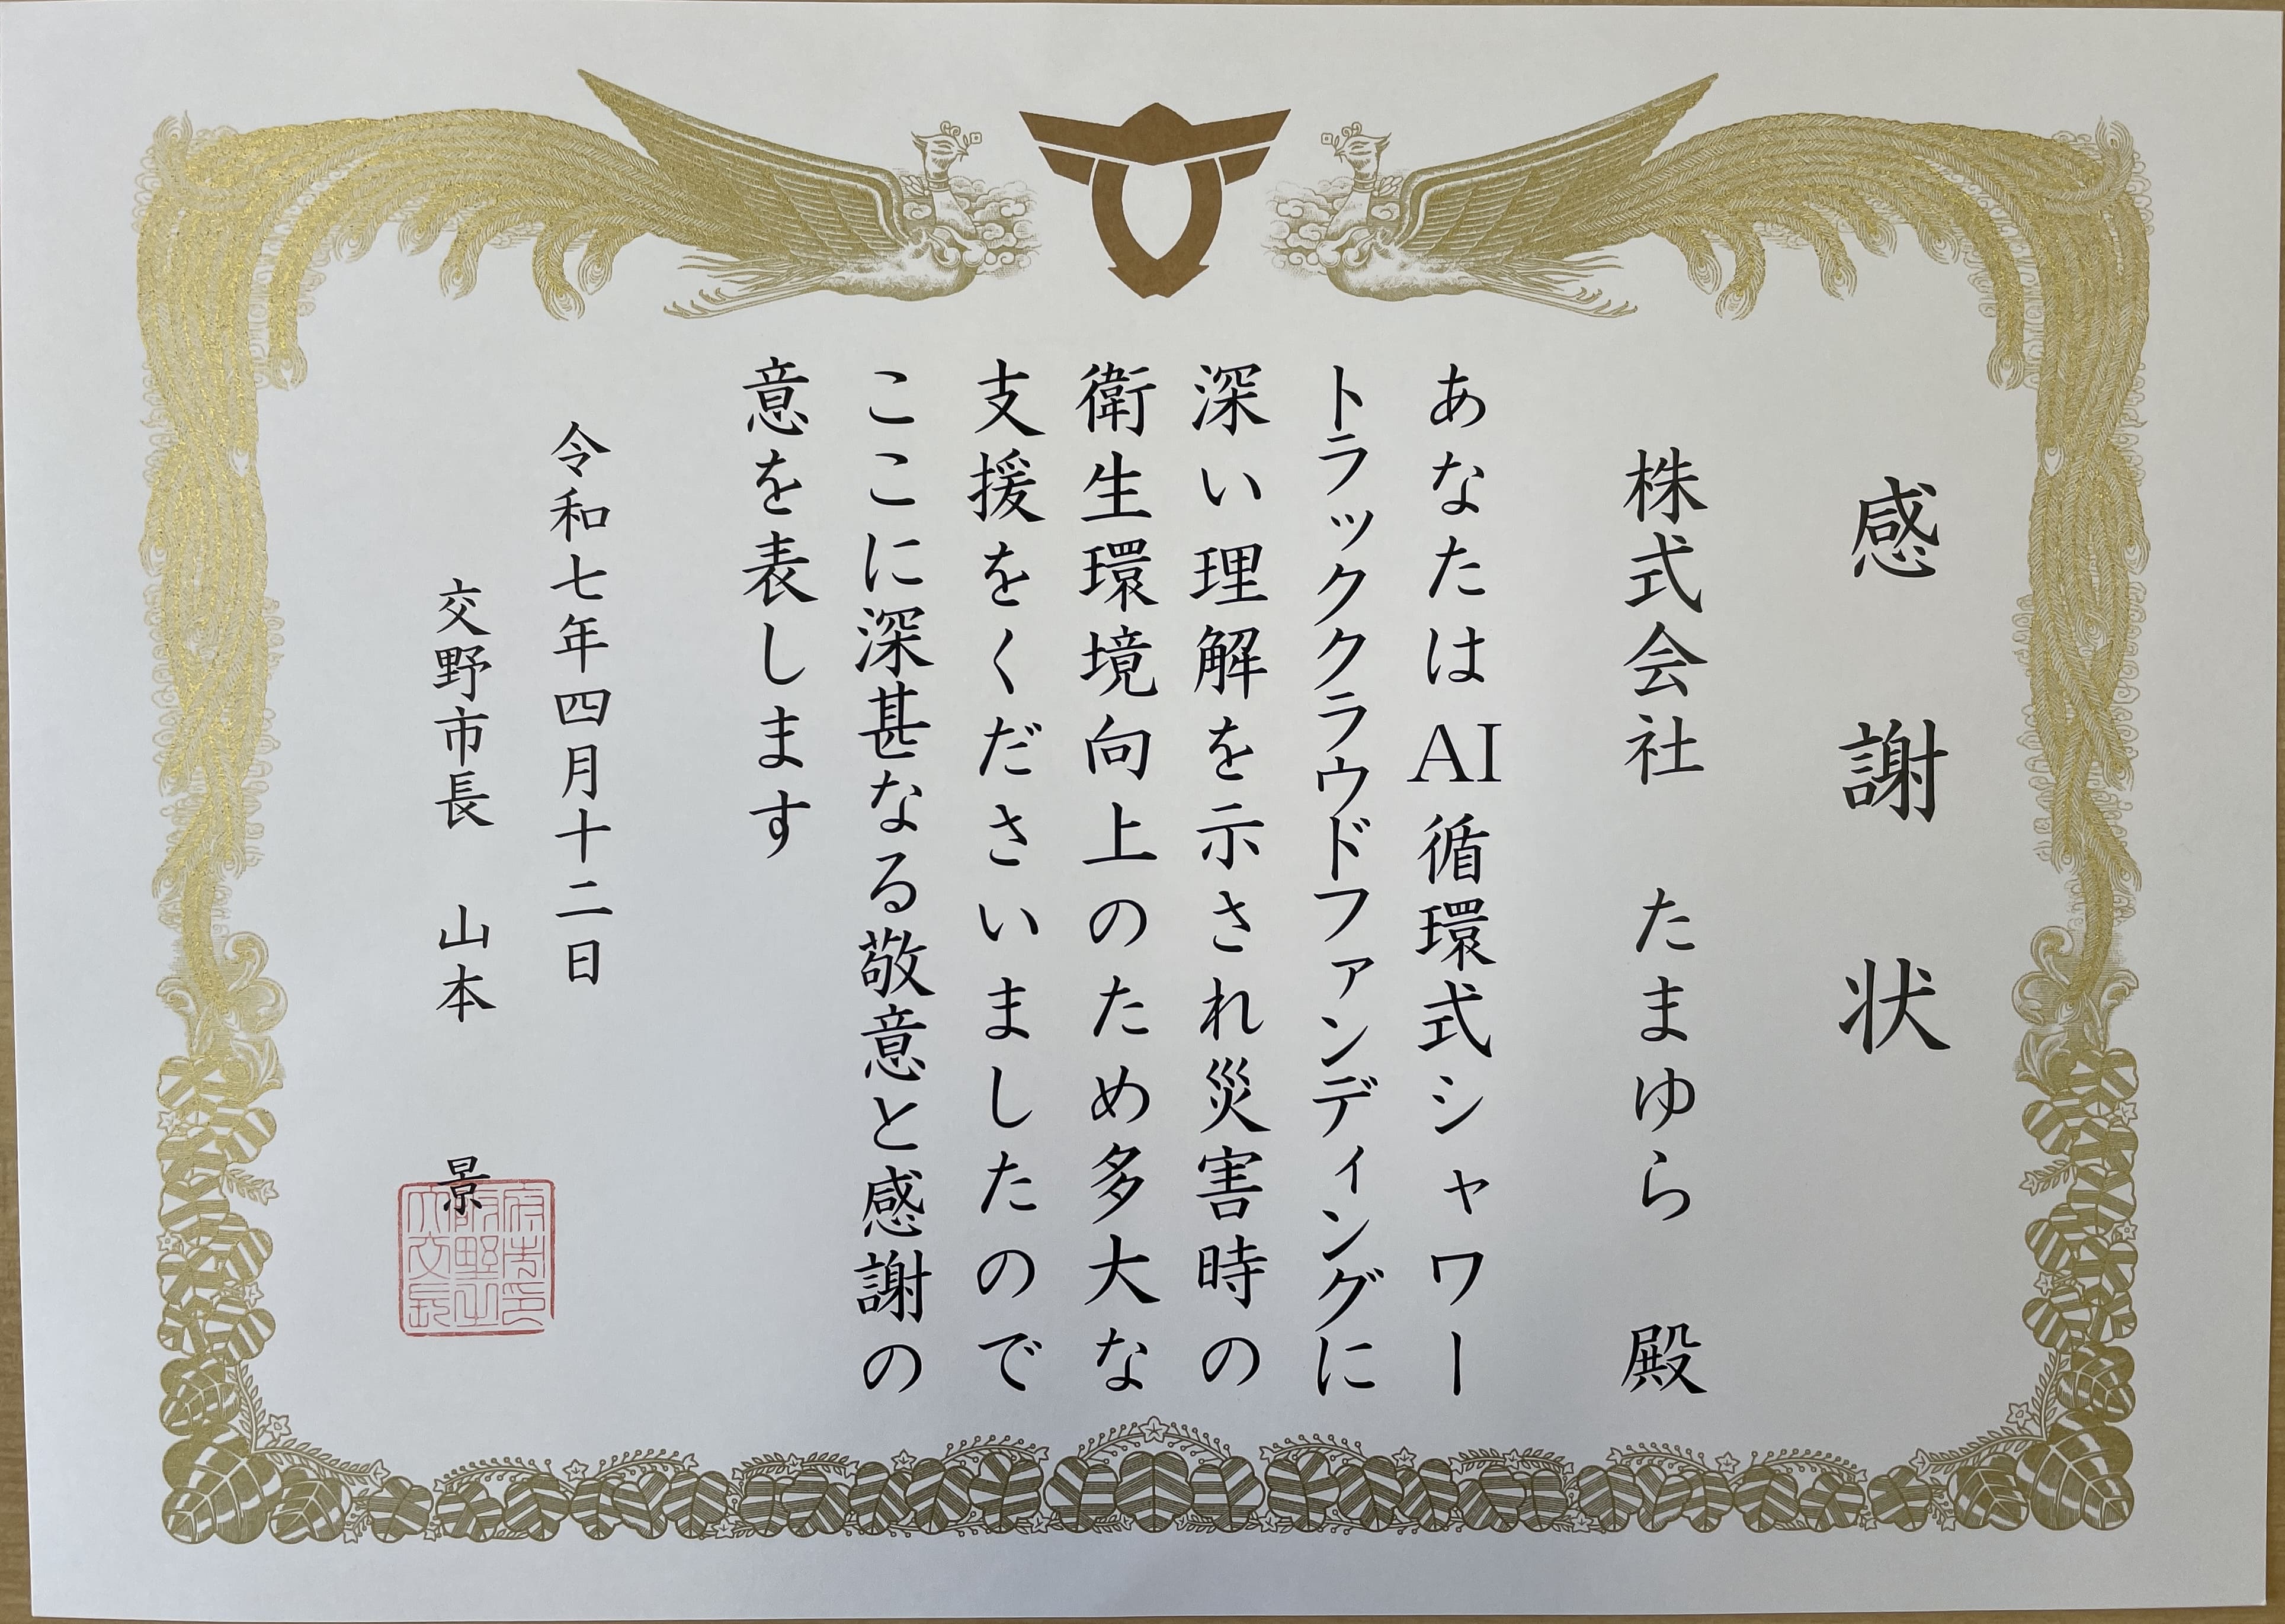 感謝状
株式会社 たまゆら 殿
あなたはAI循環式シャワー
トラッククラウドファンディングに
深い理解を示され災害時の
衛生環境向上のため多大な
支援をくださいましたので
ここに深甚なる敬意と感謝の
意を表します
令和七年四月十二日
交野市長 山本 景